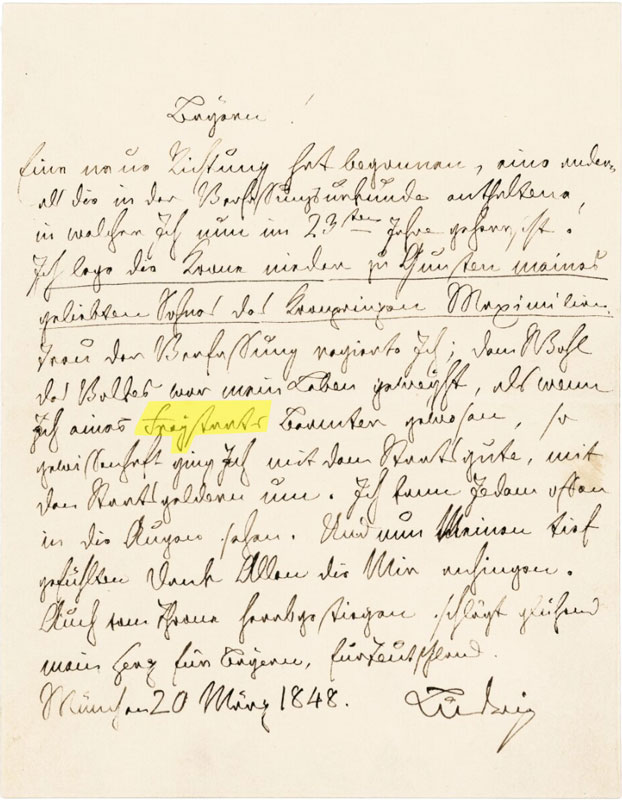 Bayern!
Eine neue Richtung hat begonnen, eine andere
als die in der Verfassungsurkunde enthaltene,
in welcher Ich nun im 23ten Jahre geherrscht.
Ich lege die Krone nieder zu Gunsten meines
geliebten Sohnes des Kronprinzen Maximilian.
Treu der Verfassung regierte Ich; dem Wohl
des Volkes war mein Leben geweiht, als wenn
Ich eines Freystaats Beamter gewesen, so
gewissenhaft ging Ich mit dem Staatsgute, mit
den Staatsgeldern um. Ich kann Jedem offen
in die Augen sehen. Und nun Meinen tief
gefühlten Dank Allen die Mir anhingen.
Auch vom Throne herabgestiegen schlägt glühend
mein Herz für Bayern, für Teutschland.
München 20 März 1848. Ludwig